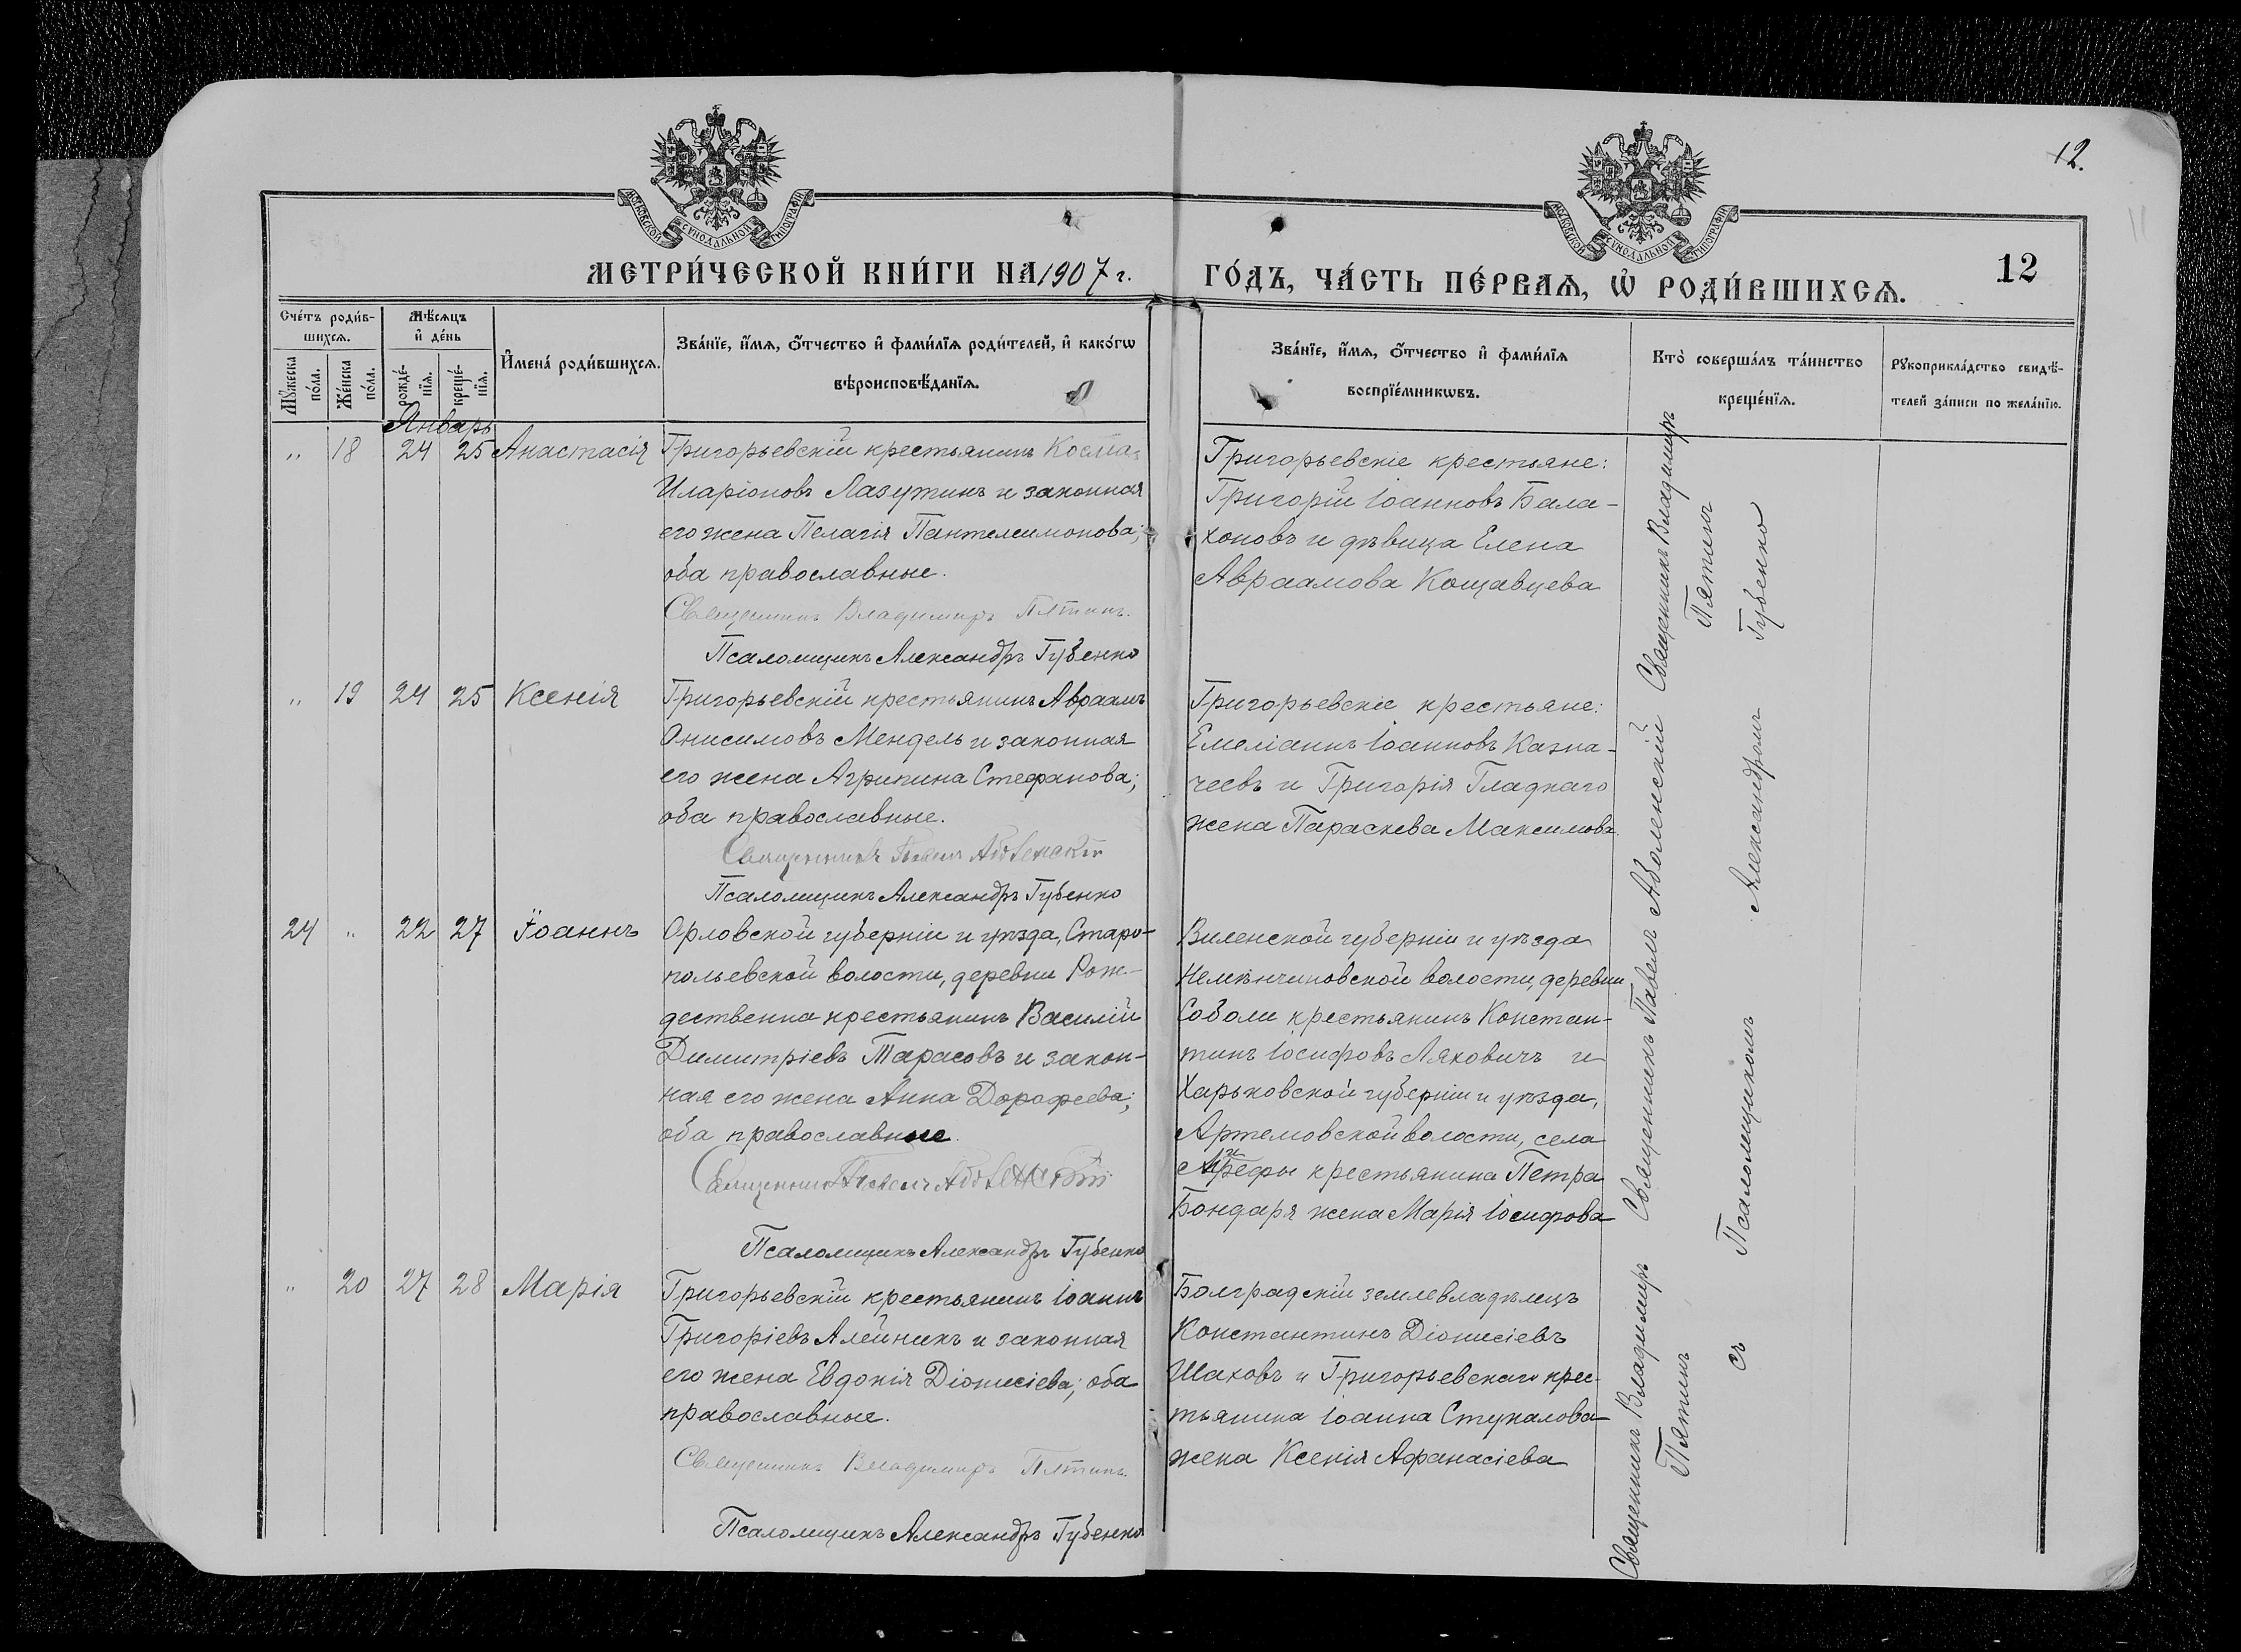 12.
МОСКОВСКОЙ СѴНОДАЛЬНОЙ ТИПОГРАФІИ
МОСКОВСКОЙ СѴНОДАЛЬНОЙ ТИПОГРАФІИ
МЕТРИ́ЧЕСКОЙ КНИ́ГИ НА 1907 г.
ГО́ДЪ, ЧА́СТЬ ПЕ́РВАѦ, Ѡ҆ РОДИ́ВШИХСѦ.
12
Сче́тъ роди́в-
шихсѧ.
Мꙋ́жеска по́ла.
Же́нска по́ла.
Мѣ́сѧцъ
и҆ де́нь
рожде́-
нїѧ.
креще́-
нїѧ.
И҆мена̀ роди́вшихсѧ.
Зва́нїе, и҆́мѧ, ѻ҆́тчество и҆ фами́лїѧ роди́телей, и҆ како́гѡ
вѣроисповѣ́данїѧ.
Зва́нїе, и҆́мѧ, ѻ҆́тчество и҆ фами́лїѧ
воспрїе́мникѡвъ.
Кто̀ соверша́лъ та́инство
креще́нїѧ.
Рꙋкоприкла́дство свидѣ́-
телей за́писи по жела́нїю.
Январь
" 18 24 25 Анастасія
Григорьевскій крестьянинъ Косма
Иларіоновъ Лазутинъ и законная
его жена Пелагія Пантелеимонова;
оба православные.
Священникъ Владимиръ Пятинъ.
Псаломщикъ Александръ Губенко
Григорьевскіе крестьяне:
Григорій Іоанновъ Бала-
хоновъ и дѣвица Елена
Авраамова Кощавцева
" 19 24 25 Ксенія
Григорьевскій крестьянинъ Авраамъ
Онисимовъ Мендель и законная
его жена Агрипина Стефанова;
оба православные.
Священникъ Павелъ Аболенскій
Псаломщикъ Александръ Губенко
Григорьевскіе крестьяне:
Емеліанъ Іоанновъ Казна-
чеевъ и Григорія Гладкаго
жена Параскева Максимова.
24 " 22 27 Іоаннъ
Орловской губерніи и уѣзда, Старо-
польевской волости, деревни Рож-
дественна крестьянинъ Василій
Димитріевъ Тарасовъ и закон-
ная его жена Анна Дорофеева;
оба православные.
Священникъ Павелъ Аболенскій
Псаломщикъ Александръ Губенко
Виленской губерніи и уѣзда
Немѣнчиновской волости, деревни
Соболи крестьянинъ Констан-
тинъ Іосифовъ Ляховичъ и
Харьковской губерніи и уѣзда,
Артемовской волости, села
крестьянина Петра
Бондаря жена Марія Іосифова
" 20 27 28 Марія
Григорьевскій крестьянинъ Іоаннъ
Григоріевъ Алейникъ и законная
его жена Евдокія Діонисіева; оба
православные.
Священникъ Владимиръ Пятинъ.
Псаломщикъ Александръ Губенко
Болградскій землевладѣлецъ
Константинъ Діонисіевъ
Шаховъ и Григорьевскаго крес-
тьянина Іоанна Стукалова
жена Ксенія Афанасіева
Священникъ Владимиръ
Пятинъ
Священникъ Павелъ Аболенскій
Священникъ Владимиръ
Пятинъ
съ Псаломщикомъ Александромъ Губенко